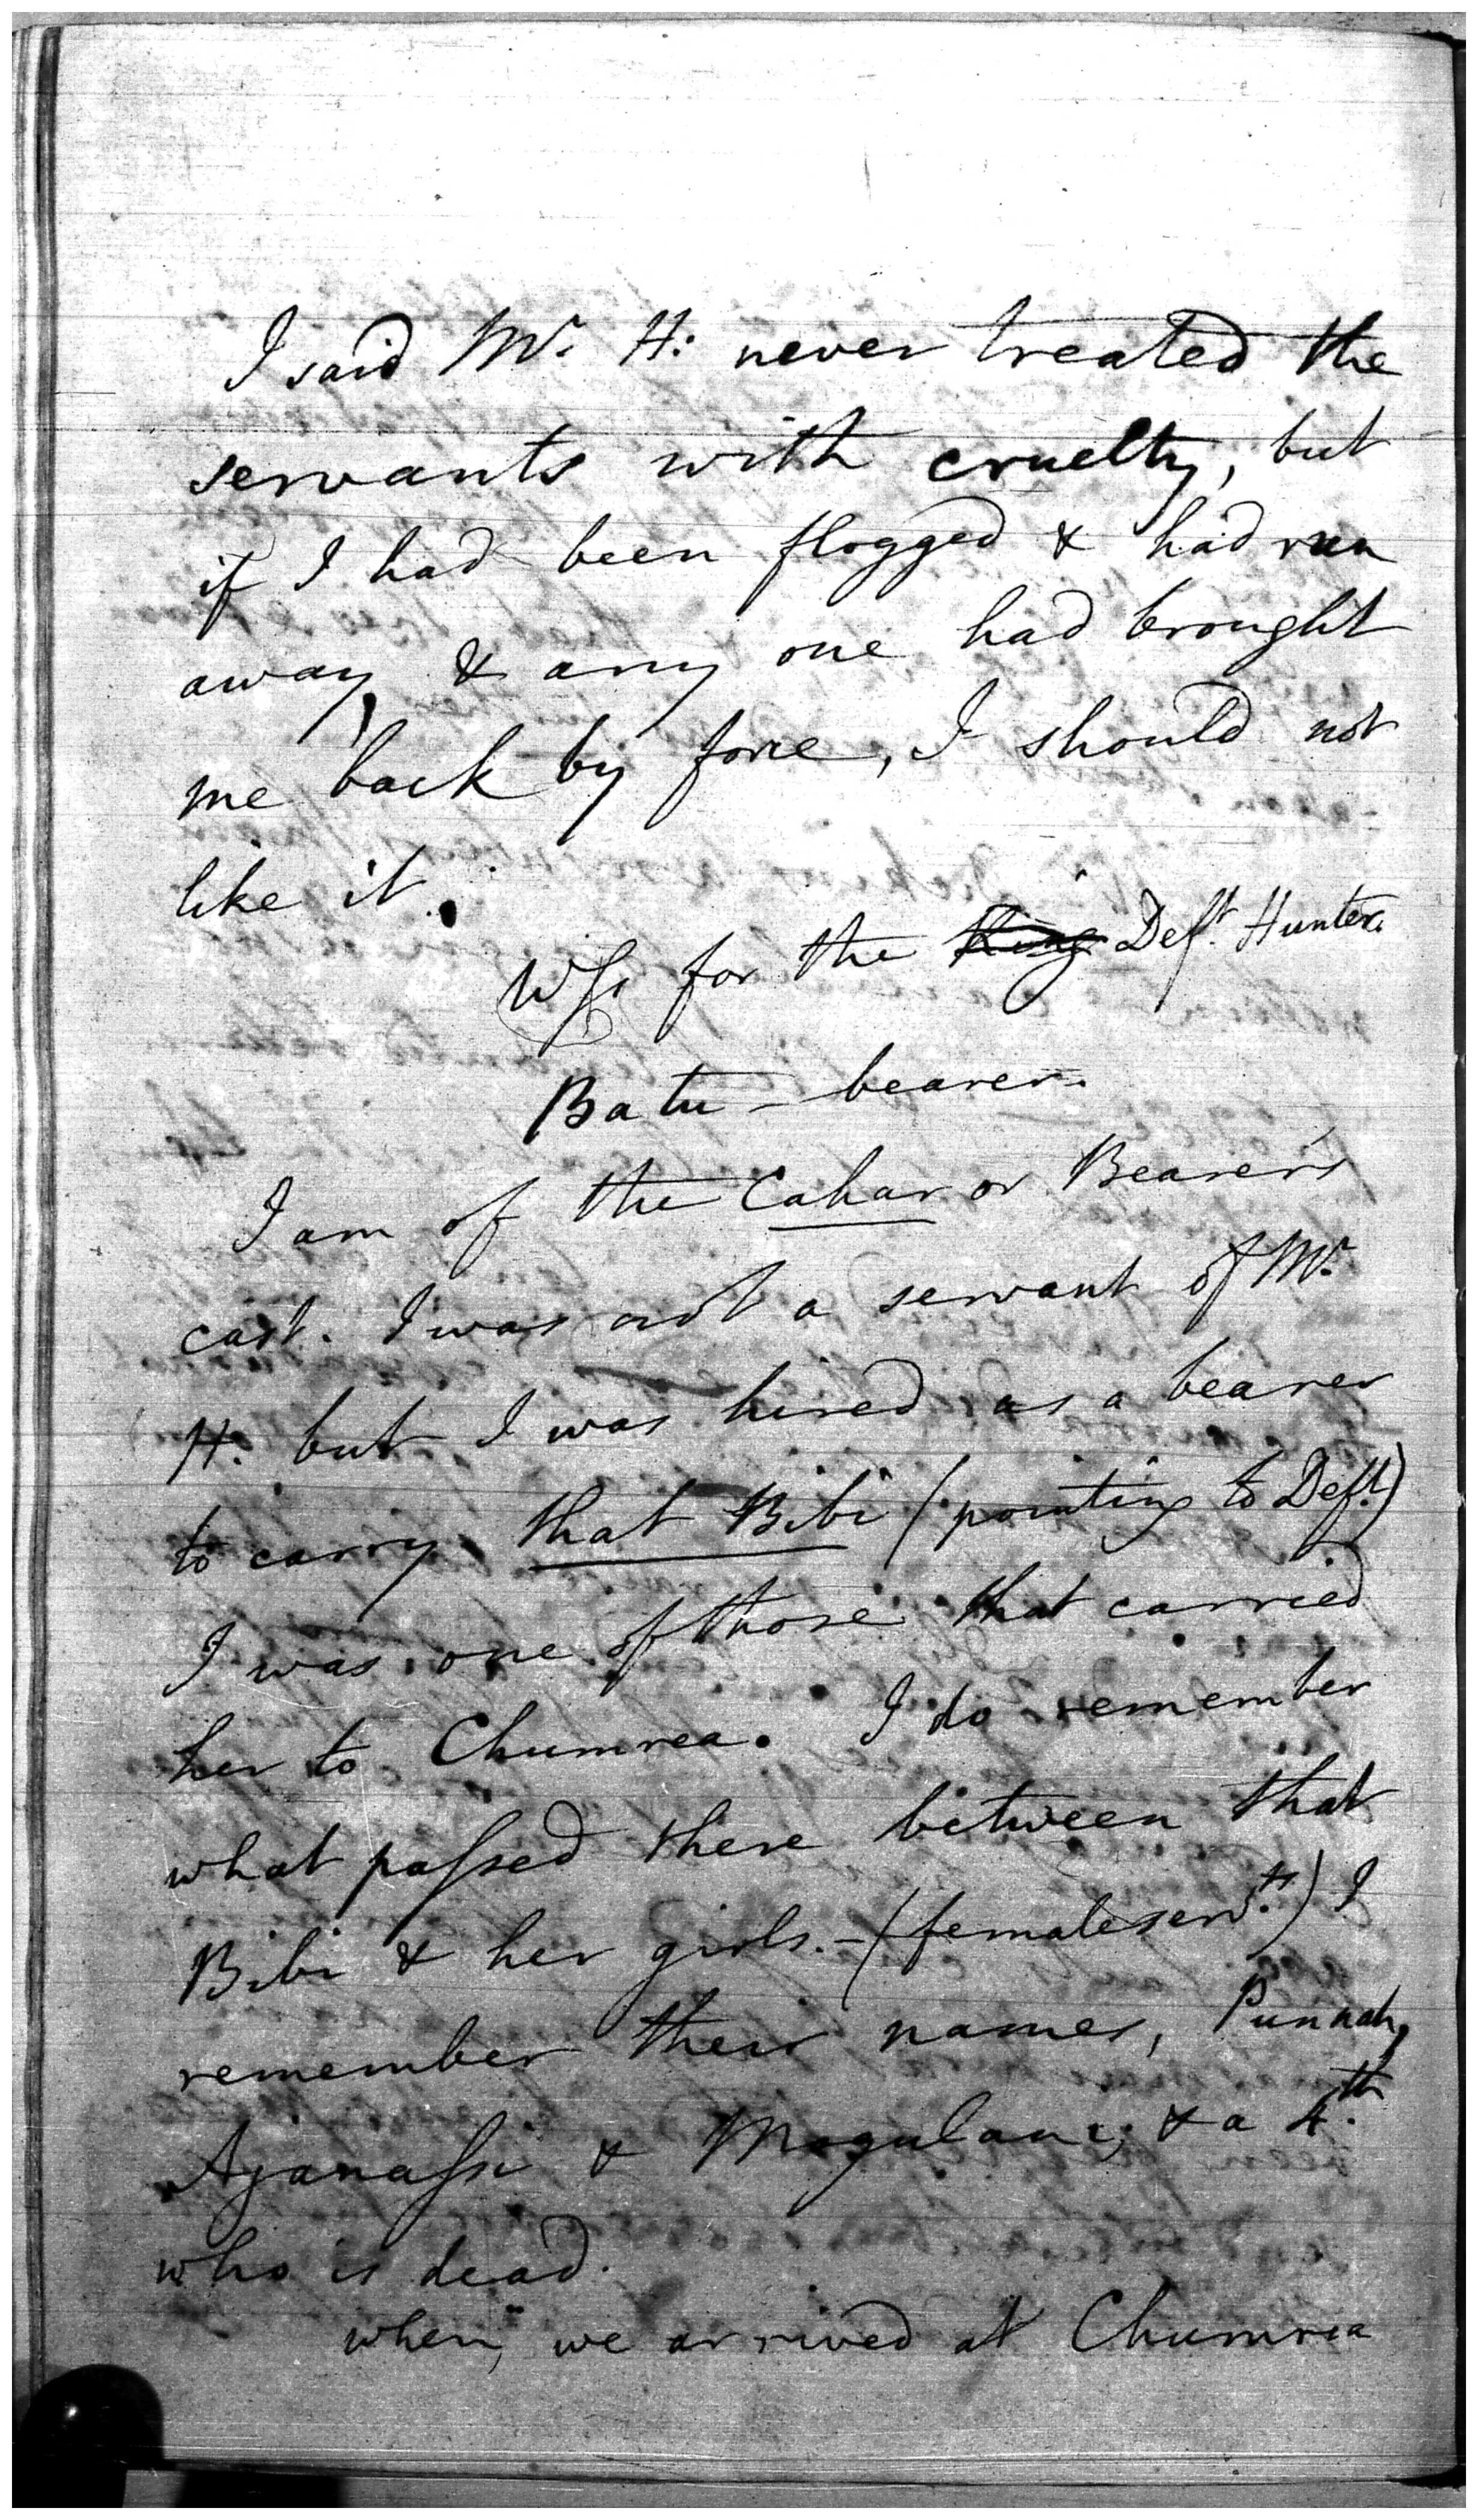 I said Mr. H: never treated the
servants with cruelty, but
if I had been flogged & had run
away, & any one had brought
me back by force, I should not
like it.
Wss for the King Deft. Hunter.
Batu - bearer.
I am of the Cahar or Bearer's
cast. I was not a servant of Mr.
H. but I was hired as a bearer
to carry that Bibi (pointing to Deft.)
I was one of those that carried
her to Chumrea. I do remember
what passed there between that
Bibi & her girls. - (female servts.) I
remember their names, Punnah,
Ajanassi & Mogulani; & a 4th.
who is dead.
when, we arrived at Chumrea